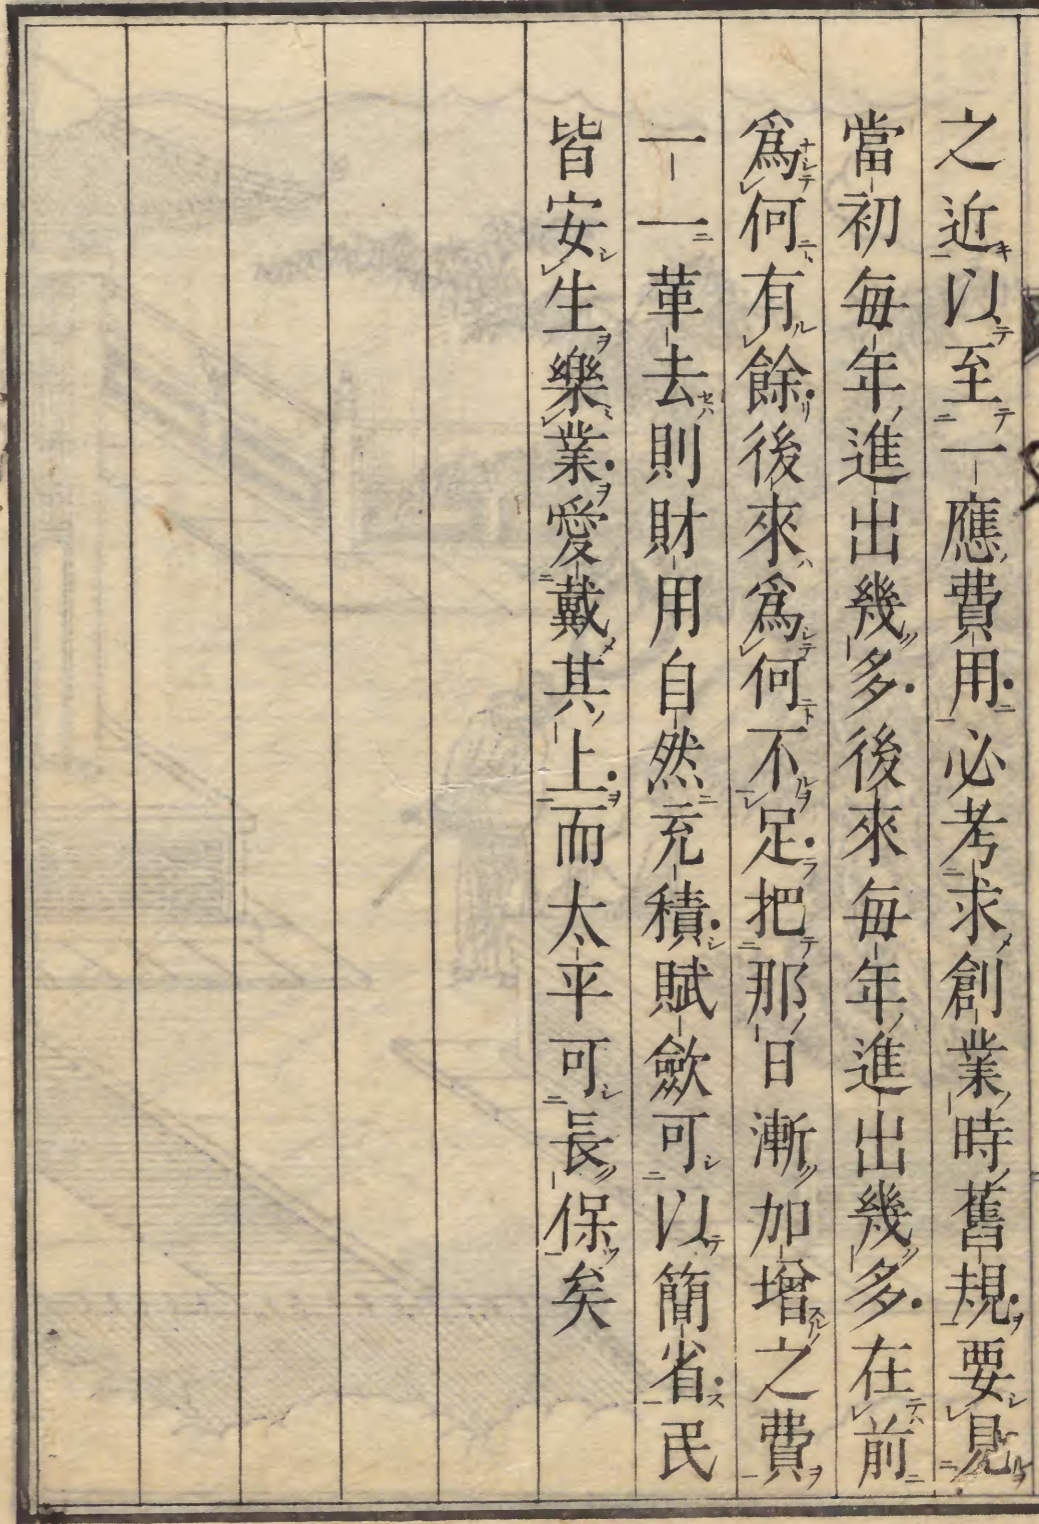 之近以至一應費用必考求創業時舊規要見
當初每年進出幾多後來每年進出幾多在前
爲何有餘後來爲何不足把那日漸加增之費
一一革去則財用自然充積賦斂可以簡省民
皆安生樂業愛戴其上而太平可長保矣